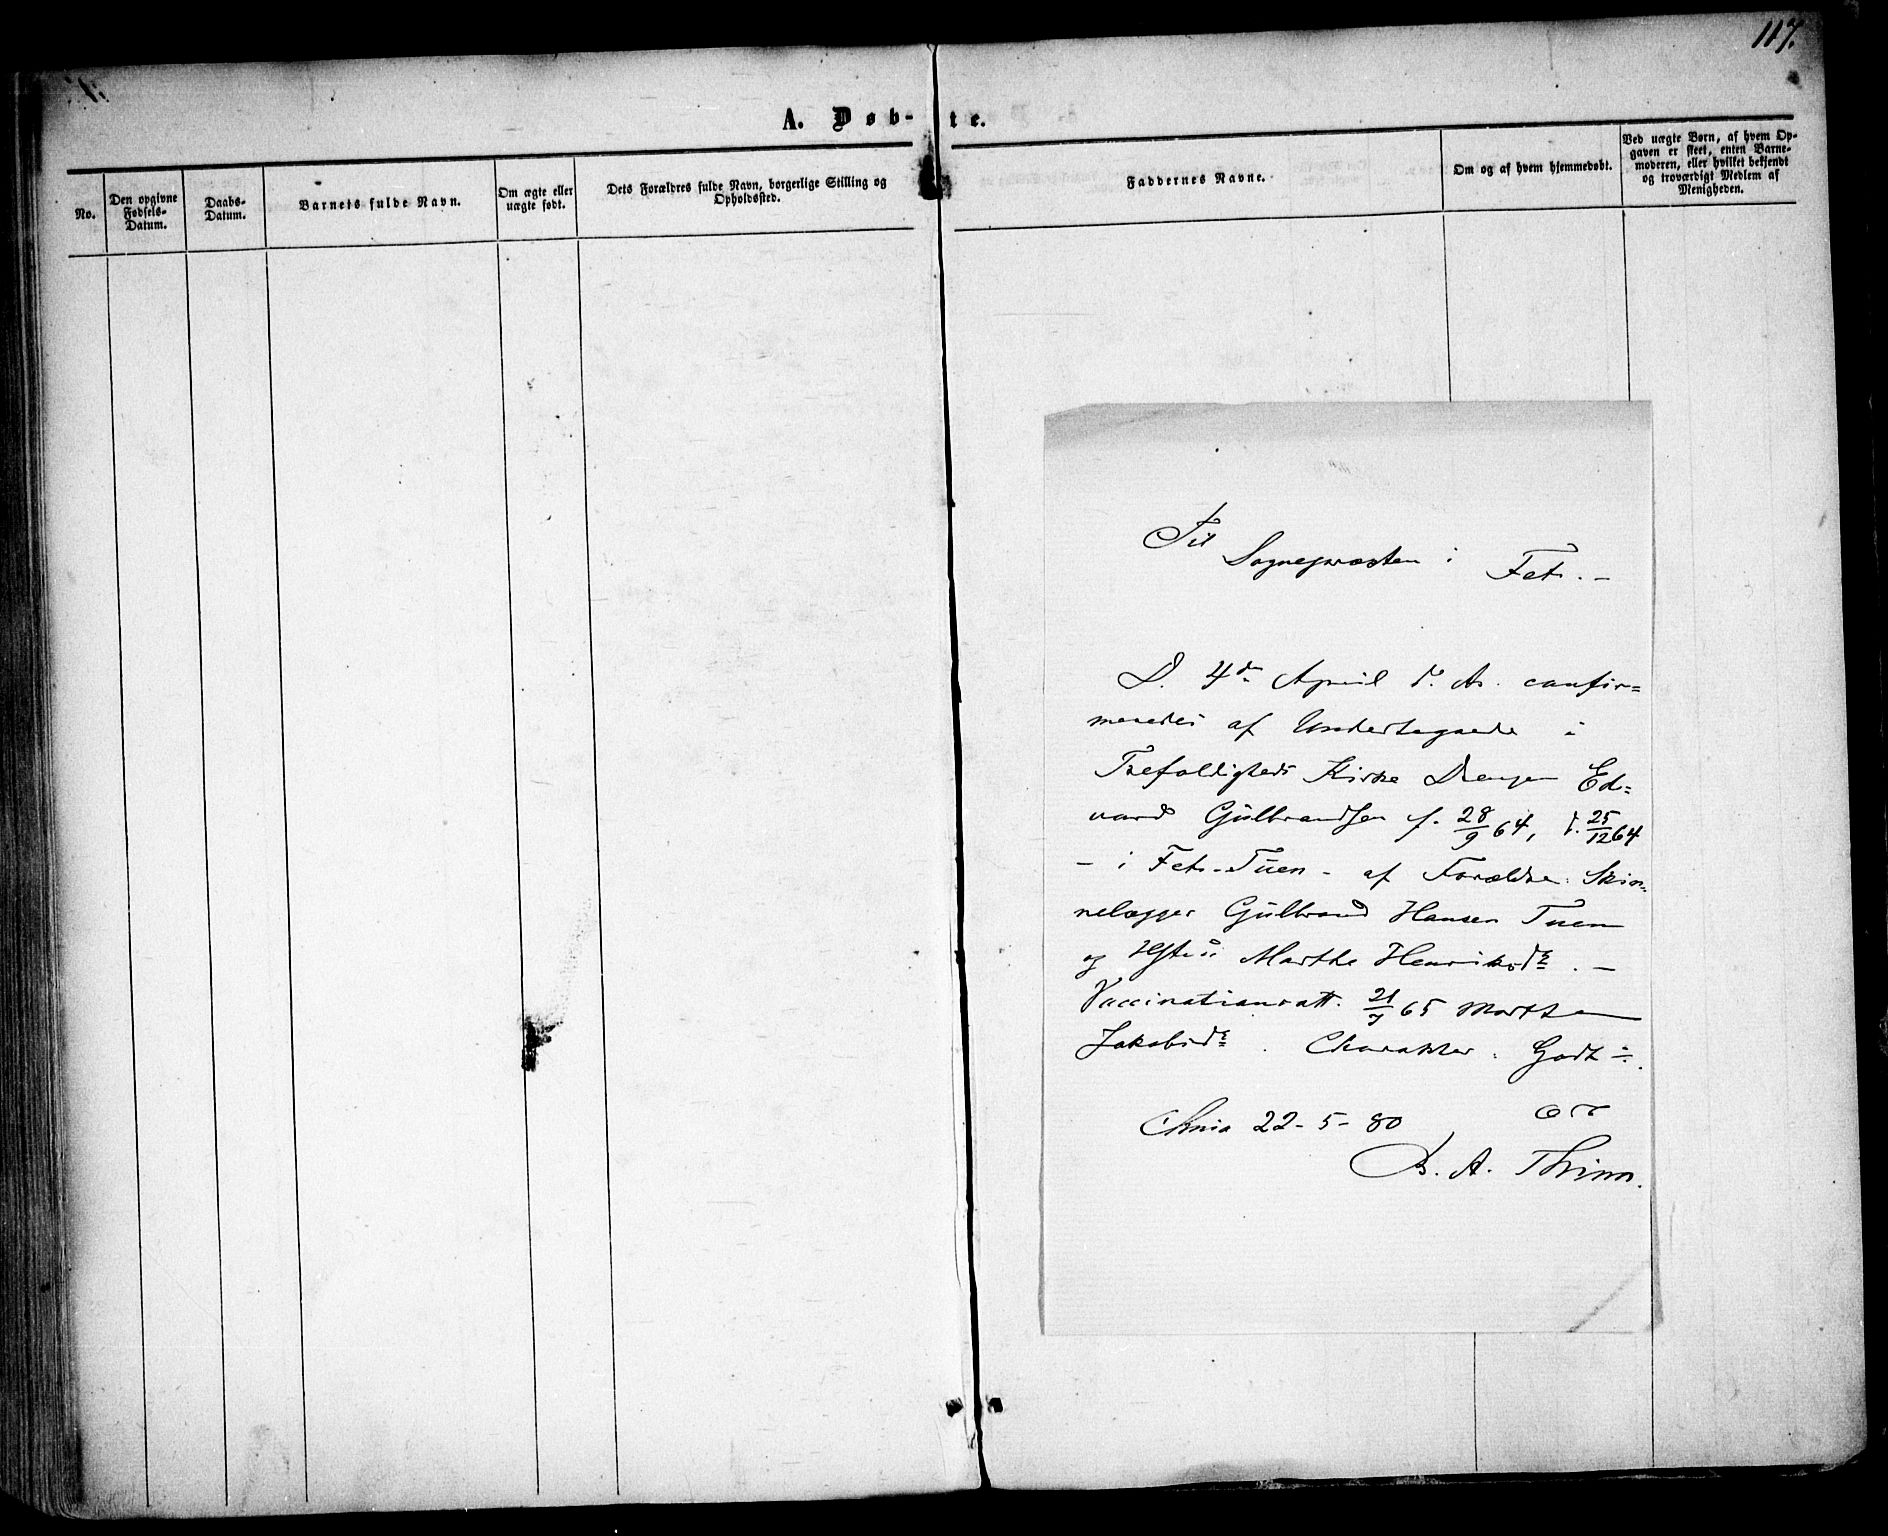 117.
A. Døb-te.
No.
Den opgivne
Fødsels-
Datum.
Daabs-
Datum.
Barnets fulde Navn.
Om ægte eller
uægte født.
Dets Forældres fulde Navn, borgerlige Stilling og
Opholdssted.
Faddernes Navne.
Om og af hvem hjemmedøbt.
Ved uægte Børn, af hvem Op-
gaven er skeet, enten Barne-
moderen, eller hvilket bekjendt
og troværdigt Medlem af
Menigheden.
Til
Sognepræsten i Fet. -
D. 4de April d. As. confir=
meredes af Undertegnede i
Trefoldigheds Kirke Drengen Ed=
vard Gulbrandsen f. 28/9 64, d. 25/12 64
- i Fet - Tuen - af Forældre: Skin=
nelægger Gulbrand Hansen Tuen
og Hstru Marthe Henriksdr. -
Vaccinationsatt. 21/7 65 Marthe
Jakobsdr. Charakter: Godt ÷.
Chnia 22-5-80
A. Thinn.